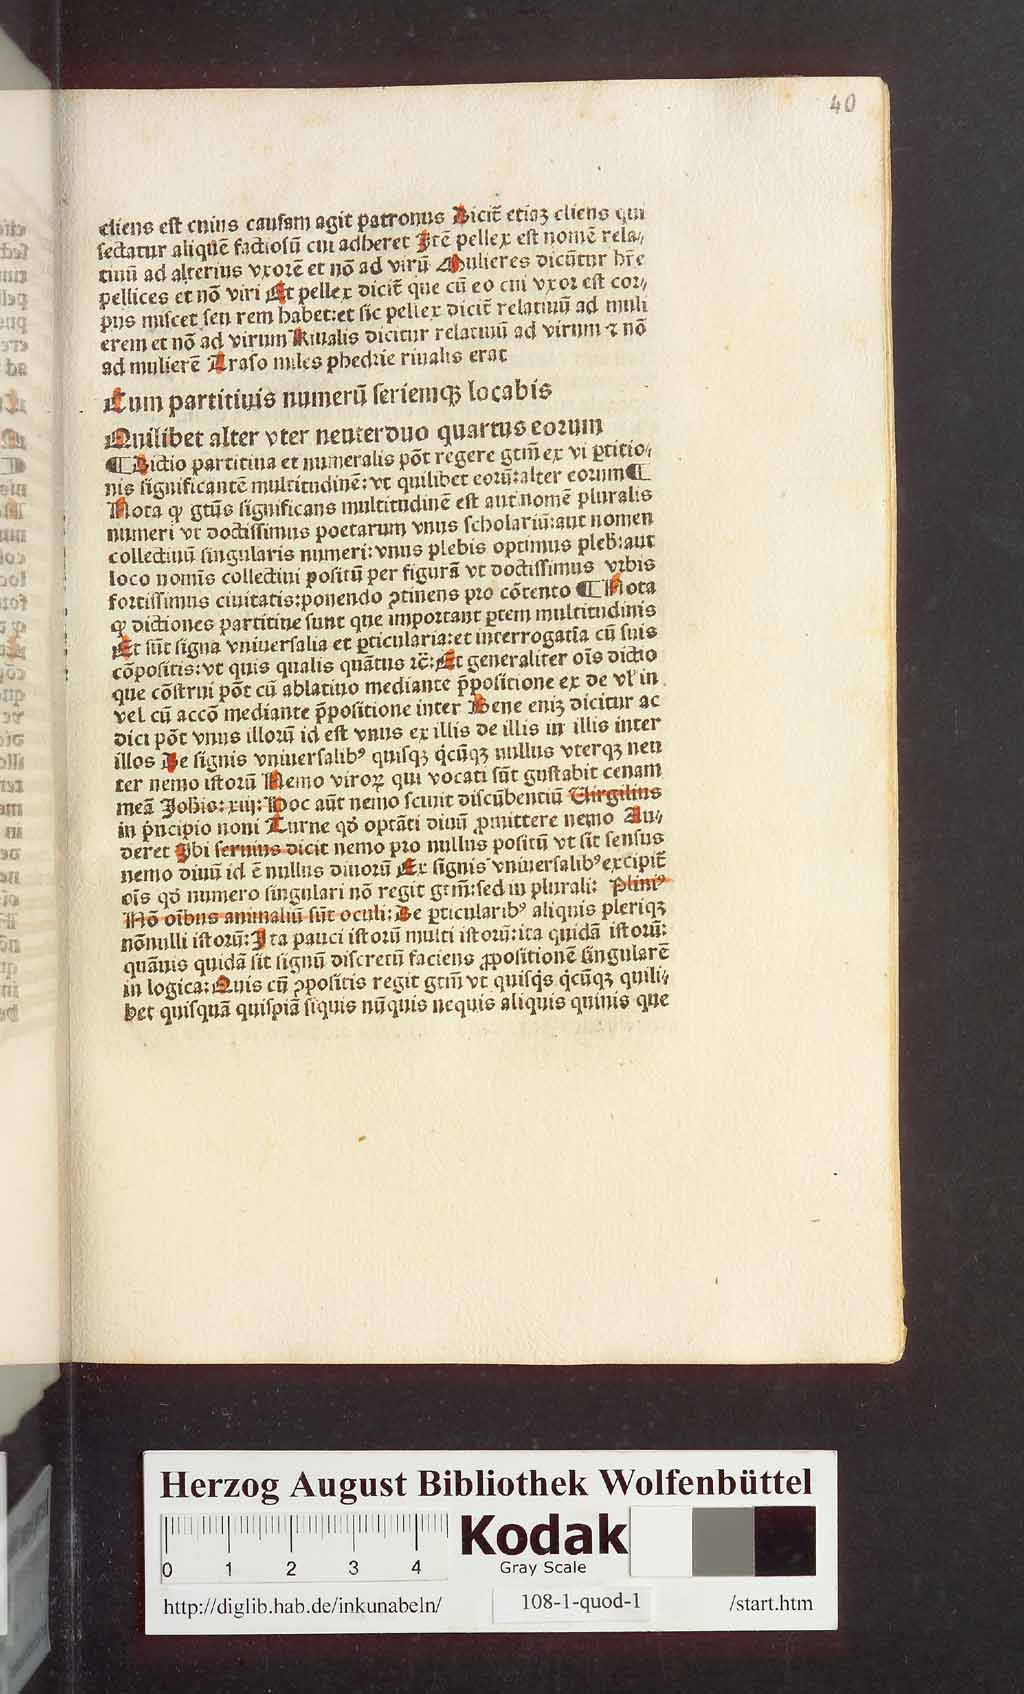 40
cliens est cuius causam agit patronus Dicit̃ etiaȝ cliens qui
sectatur aliquē factiosū cui adheret Itē pellex est nomē rela⸗
tiuū ad alterius vxorē et nō ad virū Mulieres dicūtur hr̄e
pellices et nō viri Et pellex dicit̃ que cū eo cui vxor est cor⸗
pus miscet seu rem habet:et sic pellex dicit̃ relatiuū ad muli
erem et nō ad virum Riualis dicitur relatiuū ad virum ⁊ nō
ad mulierē Traso miles phedrie riualis erat
Cum partitiuis numerū seriemqȝ locabis
Quilibet alter vter neuter duo quartus eorum
¶ Dictio partitiua et numeralis pōt regere gtm̄ ex vi ꝑtitio⸗
nis significantē multitudinē: vt quilibet eorū: alter eorum ¶
Nota ꝙ gtūs significans multitudinē est aut nomē pluralis
numeri vt doctissimus poetarum vnus scholariū: aut nomen
collectiuū singularis numeri: vnus plebis optimus pleb̄: aut
loco nominis collectiui positū per figurā vt doctissimus vrbis
fortissimus ciuitatis: ponendo ꝯtinens pro cōtento ¶ Nota
ꝙ dictiones partitiue sunt que important ꝑtem multitudinis
Et sūt signa vniuersalia et ꝑticularia: et interrogatīa cū suis
cōpositis: vt quis qualis quātus ⁊c̄: Et generaliter oīs dictio
que cōstrui pōt cū ablatiuo mediante p̄positione ex de vl̓ in
vel cū accō mediante p̄positione inter Bene eniȝ dicitur ac
dici pōt vnus illorū id est vnus ex illis de illis in illis inter
illos De signis vniuersalibꝰ quisqȝ q̇cūqȝ nullus vterqȝ neu
ter nemo istorū Nemo viroꝝ qui vocati sūt gustabit cenam
meā Johis: xiij: Hoc aūt nemo sciuit discūbentiū Virgilius
in p̓ncipio noni Turne qd̓ optāti diuū ꝓmittere nemo Au⸗
deret Ibi seruius dicit nemo pro nullus positū vt sit sensus
nemo diuū id ē nullus diuorū Ex signis vniuersalibꝰ excipit̃
oīs qd̓ numero singulari nō regit gtm̄: sed in plurali: Pliniꝰ
Nō oībus animaliū sūt oculi: De ꝑticularibꝰ aliquis pleriqȝ
nōnulli istorū: Ita pauci istorū multi istorū: ita quidā istorū:
quāuis quidā sit signū discretū faciens ꝓpositionē singularē
in logica: Quis cū ꝯpositis regit gtm̄ vt quisq̇s q̇cūqȝ quili⸗
bet quisquā quispiā siquis nūquis nequis aliquis quinis que
Herzog August Bibliothek Wolfenbüttel
0 1 2 3 4
Kodak
Gray Scale
http://diglib.hab.de/inkunabeln/ 108-1-quod-1 /start.htm